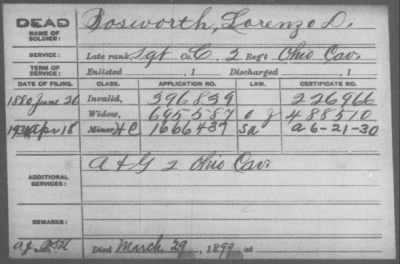 DEAD
NAME OF SOLDIER: Bosworth, Lorenzo D.
SERVICE: Late rank, Sgt Co. C, 2 Reg't Ohio Cav.
TERM OF SERVICE: Enlisted , 1 Discharged , 1
DATE OF FILING. CLASS. APPLICATION NO. LAW. CERTIFICATE NO.
1880 June 26 Invalid, 396839 226966
Widow, 695587 488510
Apr 18 Minor, 1666437 a 6-21-30
ADDITIONAL SERVICES: A & G 2 Ohio Cav.
REMARKS:
Died March 29, 1899, at